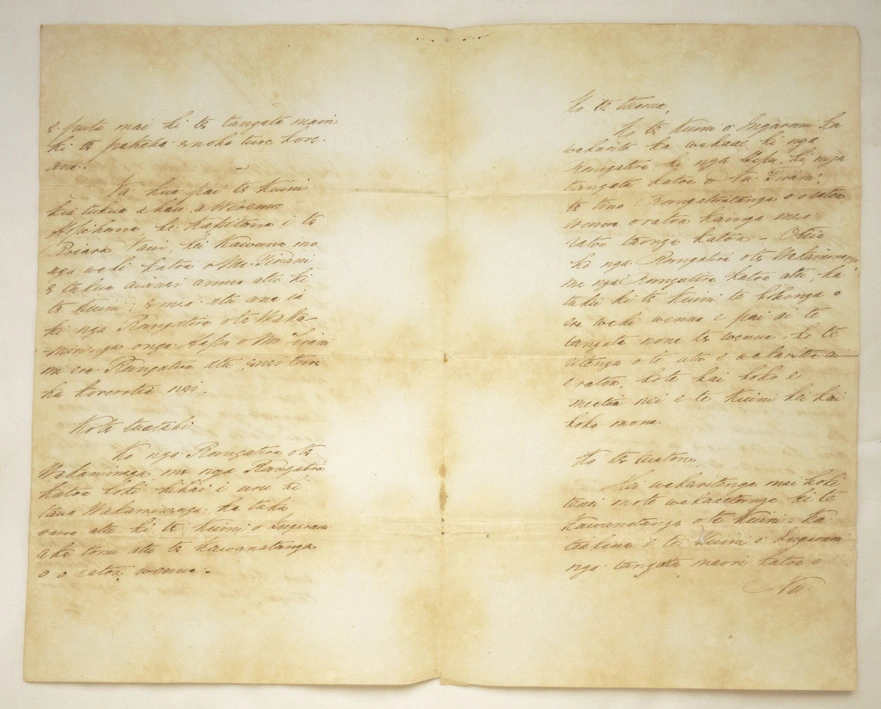 e puta mai ki te tangata maori
ki te pakeha e noho ture kore
ana.
Na kua pai te Kuini
kia tukua a hau a Wiremu
Hopihona he Kapitana i te
Roiara Nawi, hei Kawana mo
nga wahi katoa o Nu Tirani
e tukua aianei amua atu ki
te Kuini; e mea atu ana ia
ki nga Rangatira o te Waka-
minenga o nga Hapu o Nu Tirani
me era Rangatira atu enei ture
ka korerotia nei.
Ko te tuatahi
Ko nga Rangatira o te
Wakaminenga me nga Rangatira
katoa hoki kihai i uru ki
taua Wakaminenga ka tuku
rawa atu ki te Kuini o Ingarani
ake tonu atu te Kawanatanga
o o ratou wenua.
Ko te tuarua.
Ko te Kuini o Ingarani ka
wakarita ka wakaae ki nga
Rangatira ki nga Hapu, ki nga
tangata katoa o Nu Tirani,
te tino Rangatiratanga o o ratou
wenua o ratou kainga me o
ratou taonga katoa. Otiia
ko nga Rangatira o te Wakaminenga
me nga Rangatira katoa atu, ka
tuku ki te Kuini te hokonga o
era wahi wenua e pai ai te
tangata nona te wenua, ki te
ritenga o te utu e wakaritea ai
e ratou, ko te kai hoko e
meatia nei e te Kuini hei kai
hoko mona.
Ko te tuatoru
Hei wakaritenga mai hoki
tenei mo te wakaaetanga ki te
Kawanatanga o te Kuini. Ka
tiakina e te Kuini o Ingarani
nga tangata maori katoa o
Nu